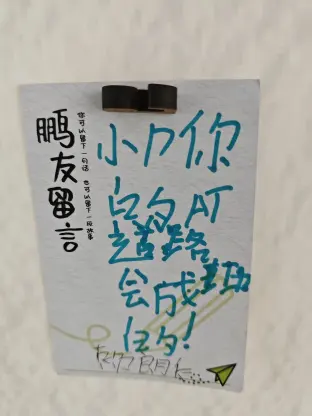 鹏友留言
你可以留下一句话 也可以留下一段故事
小P你
的AI
道路
会成功
的!